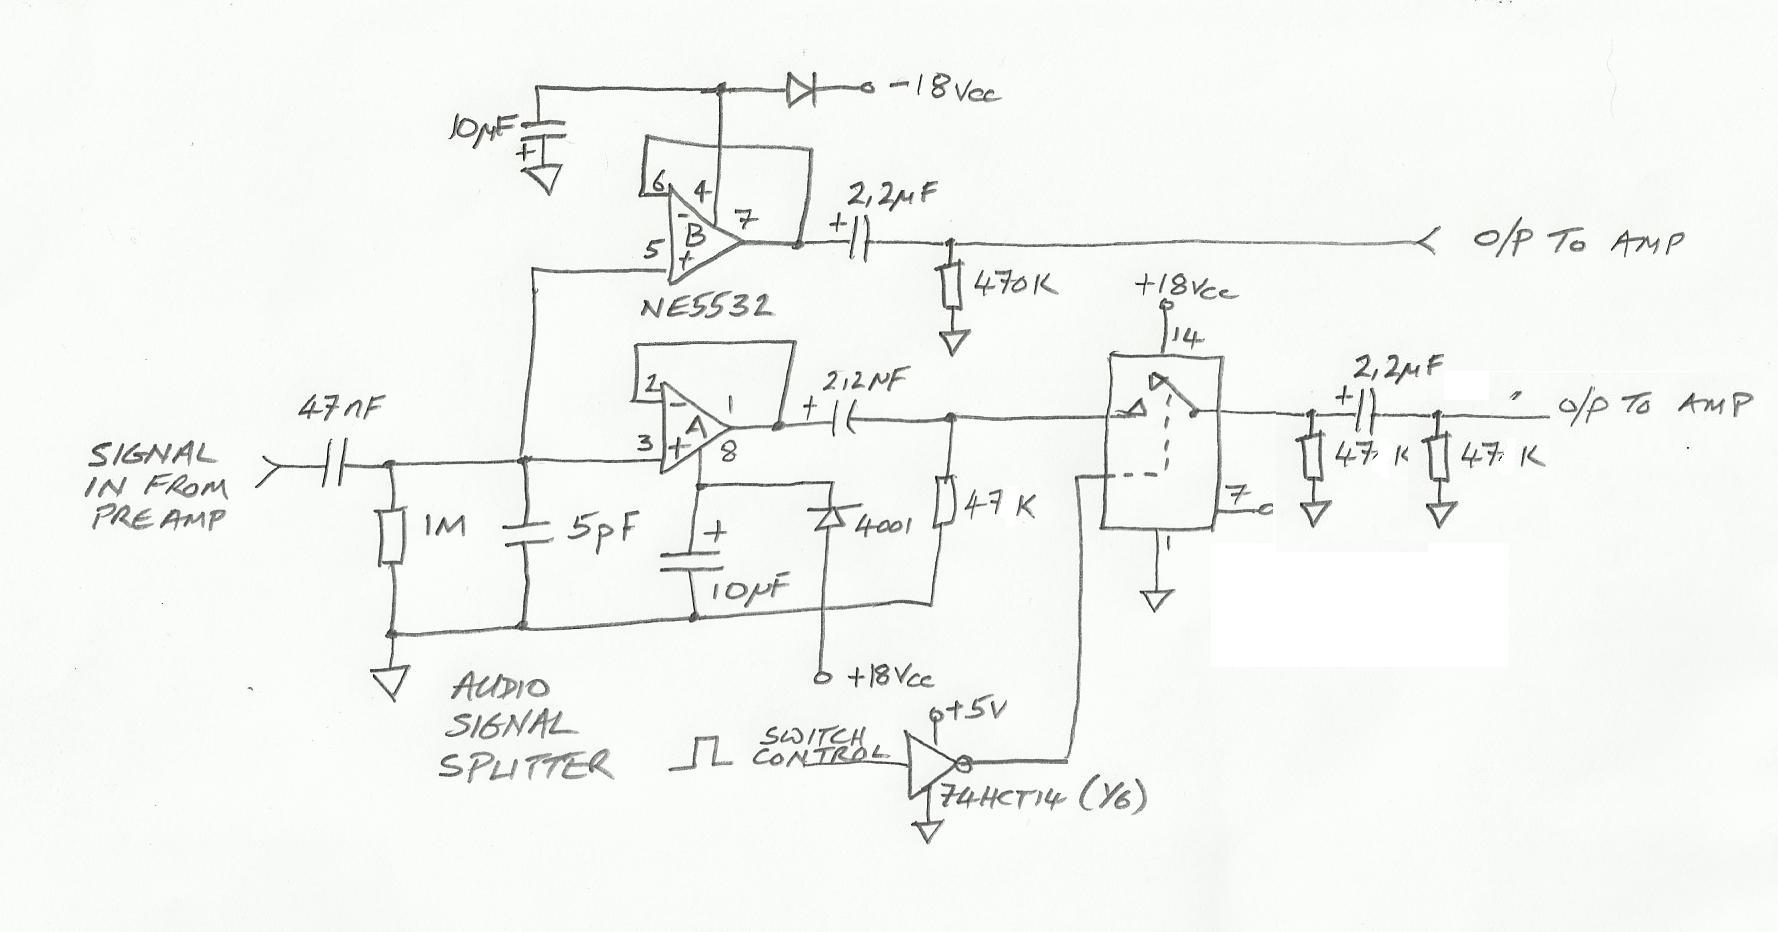 -18Vcc
10µF
+
6
4
7
2,2µF
+
5
-
B
+
O/P TO AMP
470K
NE5532
+18Vcc
14
2
1
2,2µF
+
2,2µF
+
47nF
-
A
O/P TO AMP
3
+
8
SIGNAL
IN FROM
PREAMP
47K
47K
7
1M
5pF
+
4001
47K
1
10µF
+18Vcc
AUDIO
SIGNAL
SPLITTER
+5V
SWITCH
CONTROL
74HCT14 (1/6)